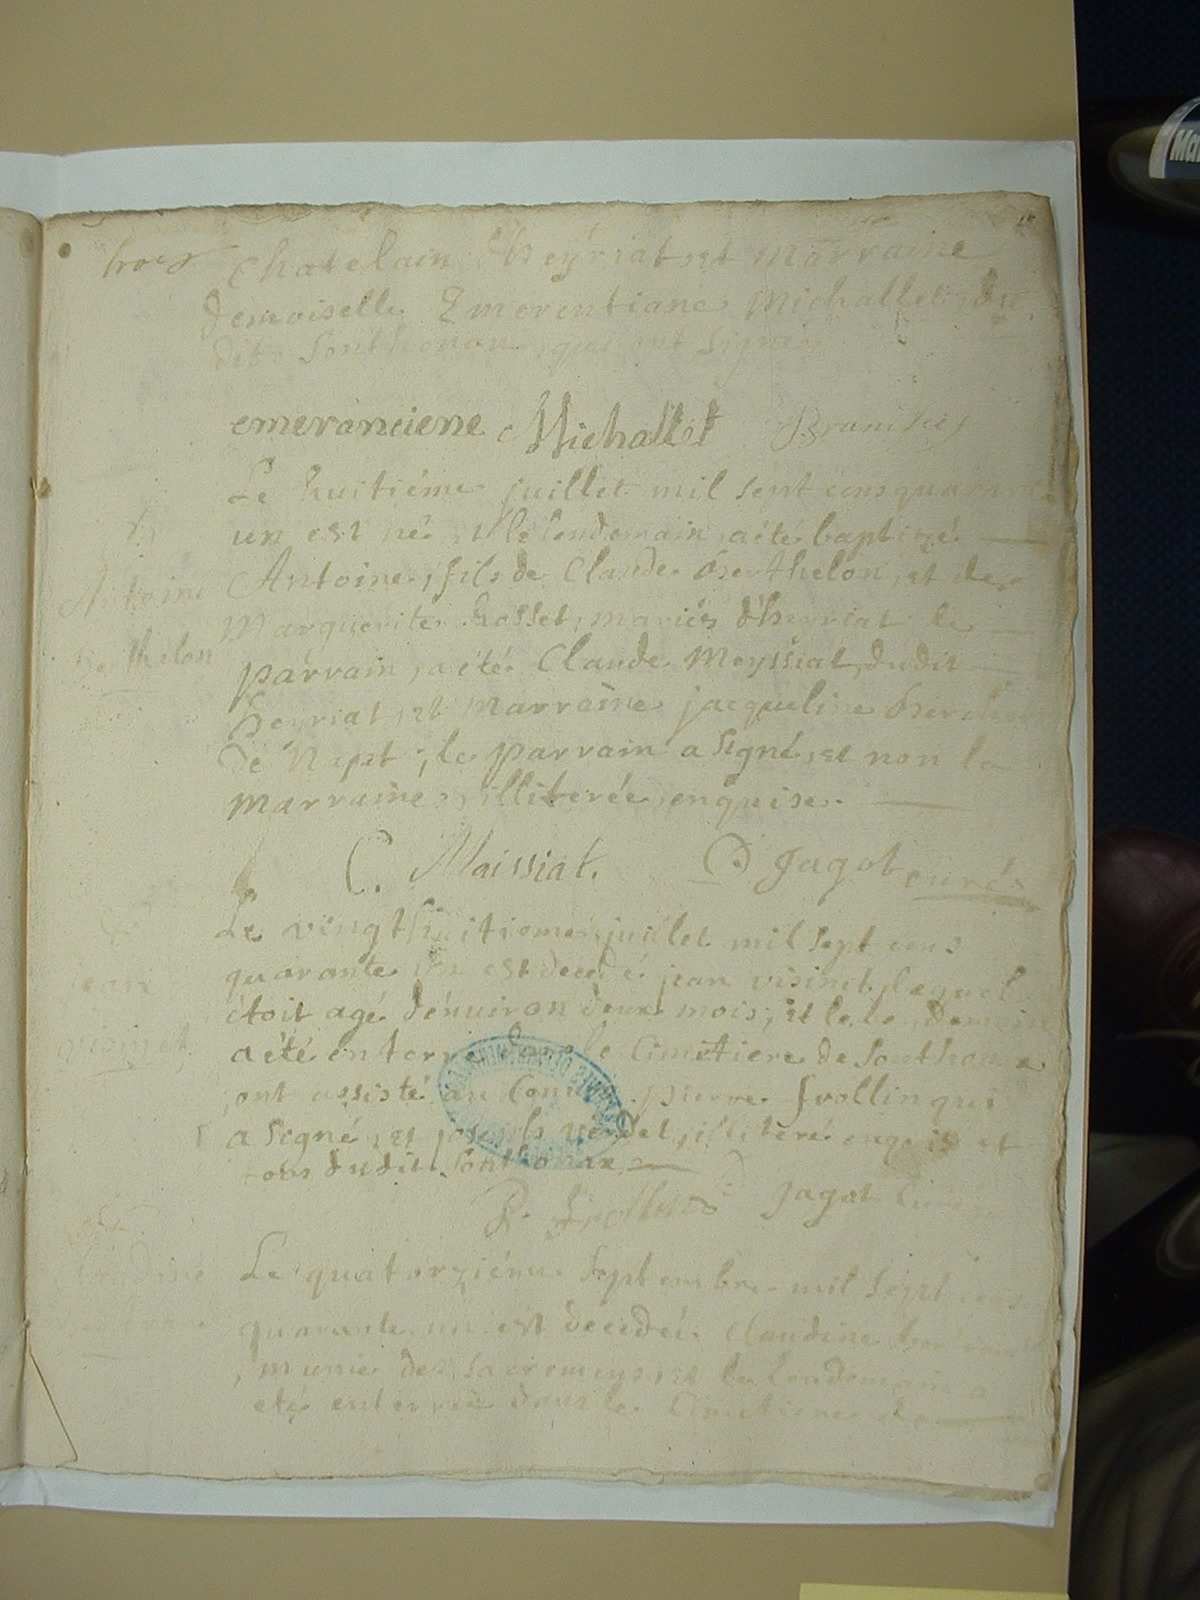 trois
chatelain heyriat, et marraine
demoiselle Emerentiane Michallet du
dit Sonthonan, qui ont signé
emeranciene Michallet
Le huitiéme juillet mil sept cens quarante
un est né, et le lendemain, a été baptizé
Antoine, fils de Claude Berthelon, et de
Marguerite Gosset, mariés d'heyriat le
parrain, a été Claude Meyssiat, dudit
heyriat, et marraine jacqueline
de Napt; le parrain a signé, et non la
marraine, illiterée, enquise.
Antoine
Berthelon
C. Maissiat. Jagot curé
Le vingt huitieme juillet mil sept cens
quarante un est decedé jean visinet, lequel
étoit agé d'énuiron deux mois, et le lendemain
a été enterré dans le cimetiere de Sonthonax
ont assisté au Conuoy pierre frollin qui
a signé, et joseph verdet, illiteré enquis et
tous dudit Sonthonax
jean
visinet
P. frollin Jagot Curé
Le quatorziéme Septembre mil sept cens
quarante un est decedée Claudine
munie des sacremens, et le lendemain a
été enterrée dans le Cimetiere de
Claudine